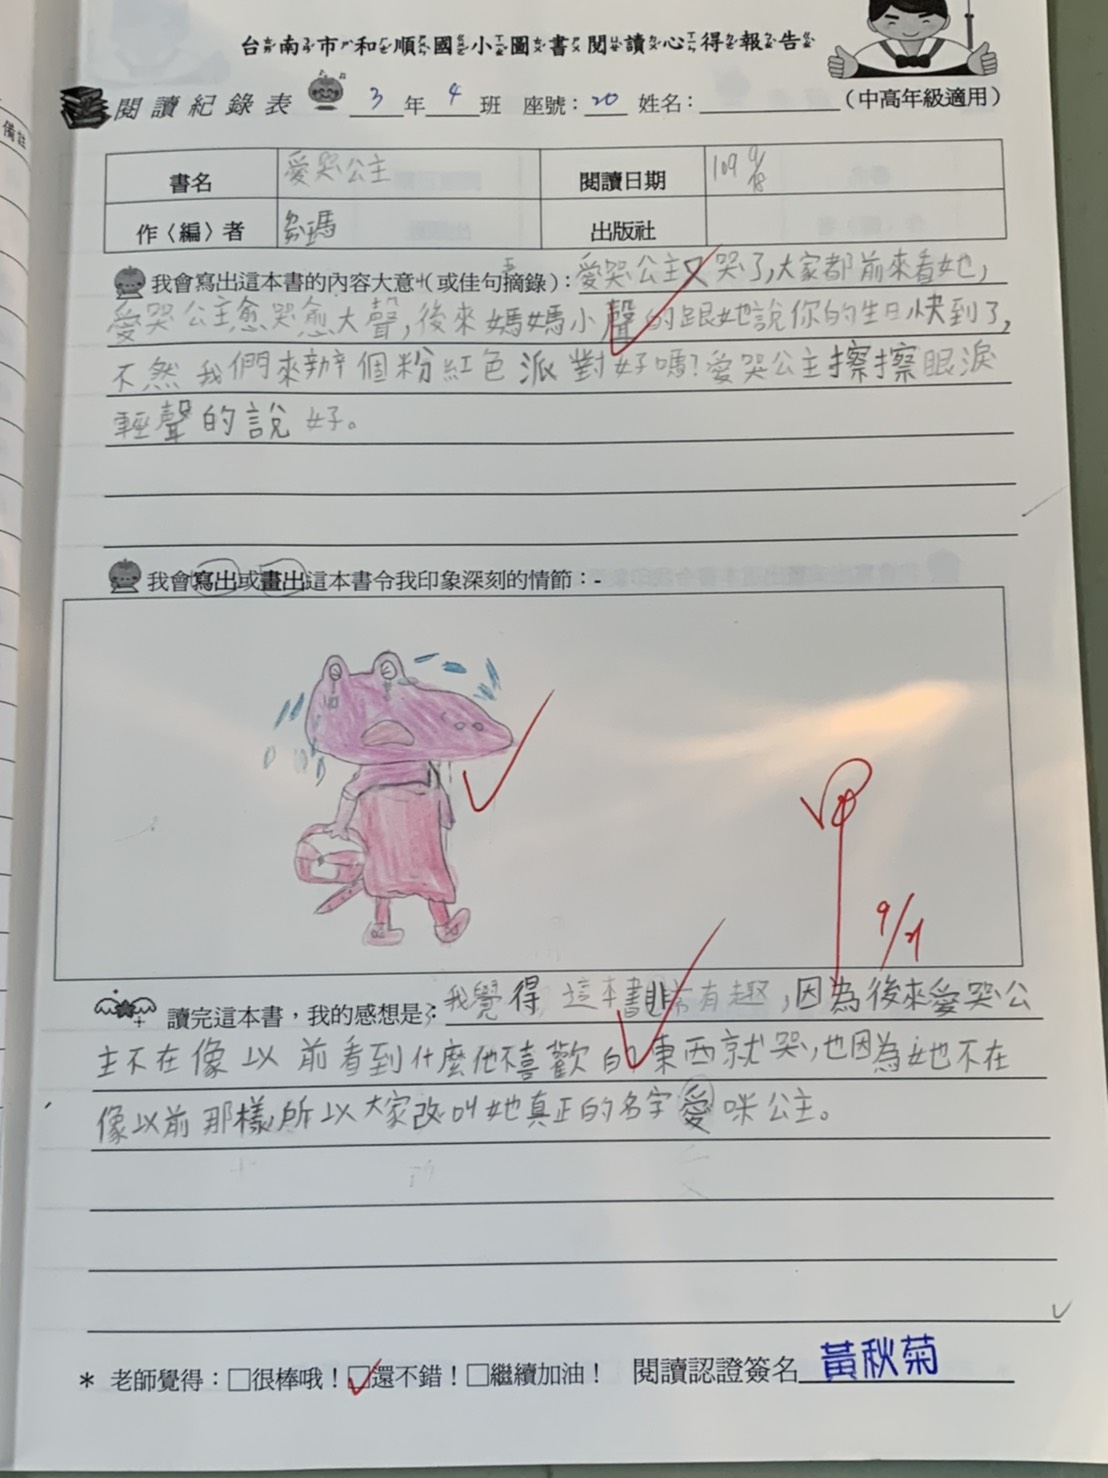 備註
台南市和順國小圖書閱讀心得報告
閱讀紀錄表 3年4班 座號：20 姓名：（中高年級適用）
書名 愛哭公主 閱讀日期 109 9/18
作〈編〉者 瑪 出版社
我會寫出這本書的內容大意(或佳句摘錄)：愛哭公主又哭了,大家都前來看她,
愛哭公主愈哭愈大聲,後來媽媽小聲的跟她說你的生日快到了,
不然我們來辦個粉紅色派對好嗎?愛哭公主擦擦眼淚
輕聲的說好。
我會寫出或畫出這本書令我印象深刻的情節：-
甲
9/21
讀完這本書，我的感想是：我覺得這本書非常有趣,因為後來愛哭公
主不在像以前看到什麼他不喜歡的東西就哭,也因為她不在
像以前那樣,所以大家改叫她真正的名字愛咪公主。
* 老師覺得：□很棒哦！□還不錯！□繼續加油！ 閱讀認證簽名 黃秋菊